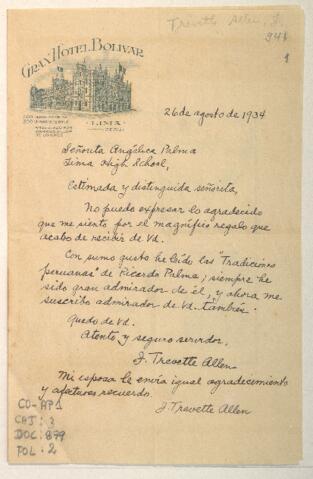 Trevette Allen, J.
1
GRAN HOTEL BOLIVAR
LIMA
26 de agosto de 1934
Señorita Angélica Palma
Lima High School,
Estimada y distinguida señorita,
No puedo expresar lo agradecido
que me siento por el magnífico regalo que
acabo de recibir de Vd.
Con sumo gusto he leído las "Tradiciones
peruanas" de Ricardo Palma; siempre he
sido gran admirador de él, y ahora me
suscribo admirador de Vd. también.
Quedo de Vd.
Atento y seguro servidor,
J. Trevette Allen
Mi esposa le envía igual agradecimiento
y afectuoso recuerdo.
J. Trevette Allen
CO-AP1
CAJ: 3
DOC: 879
FOL: 2